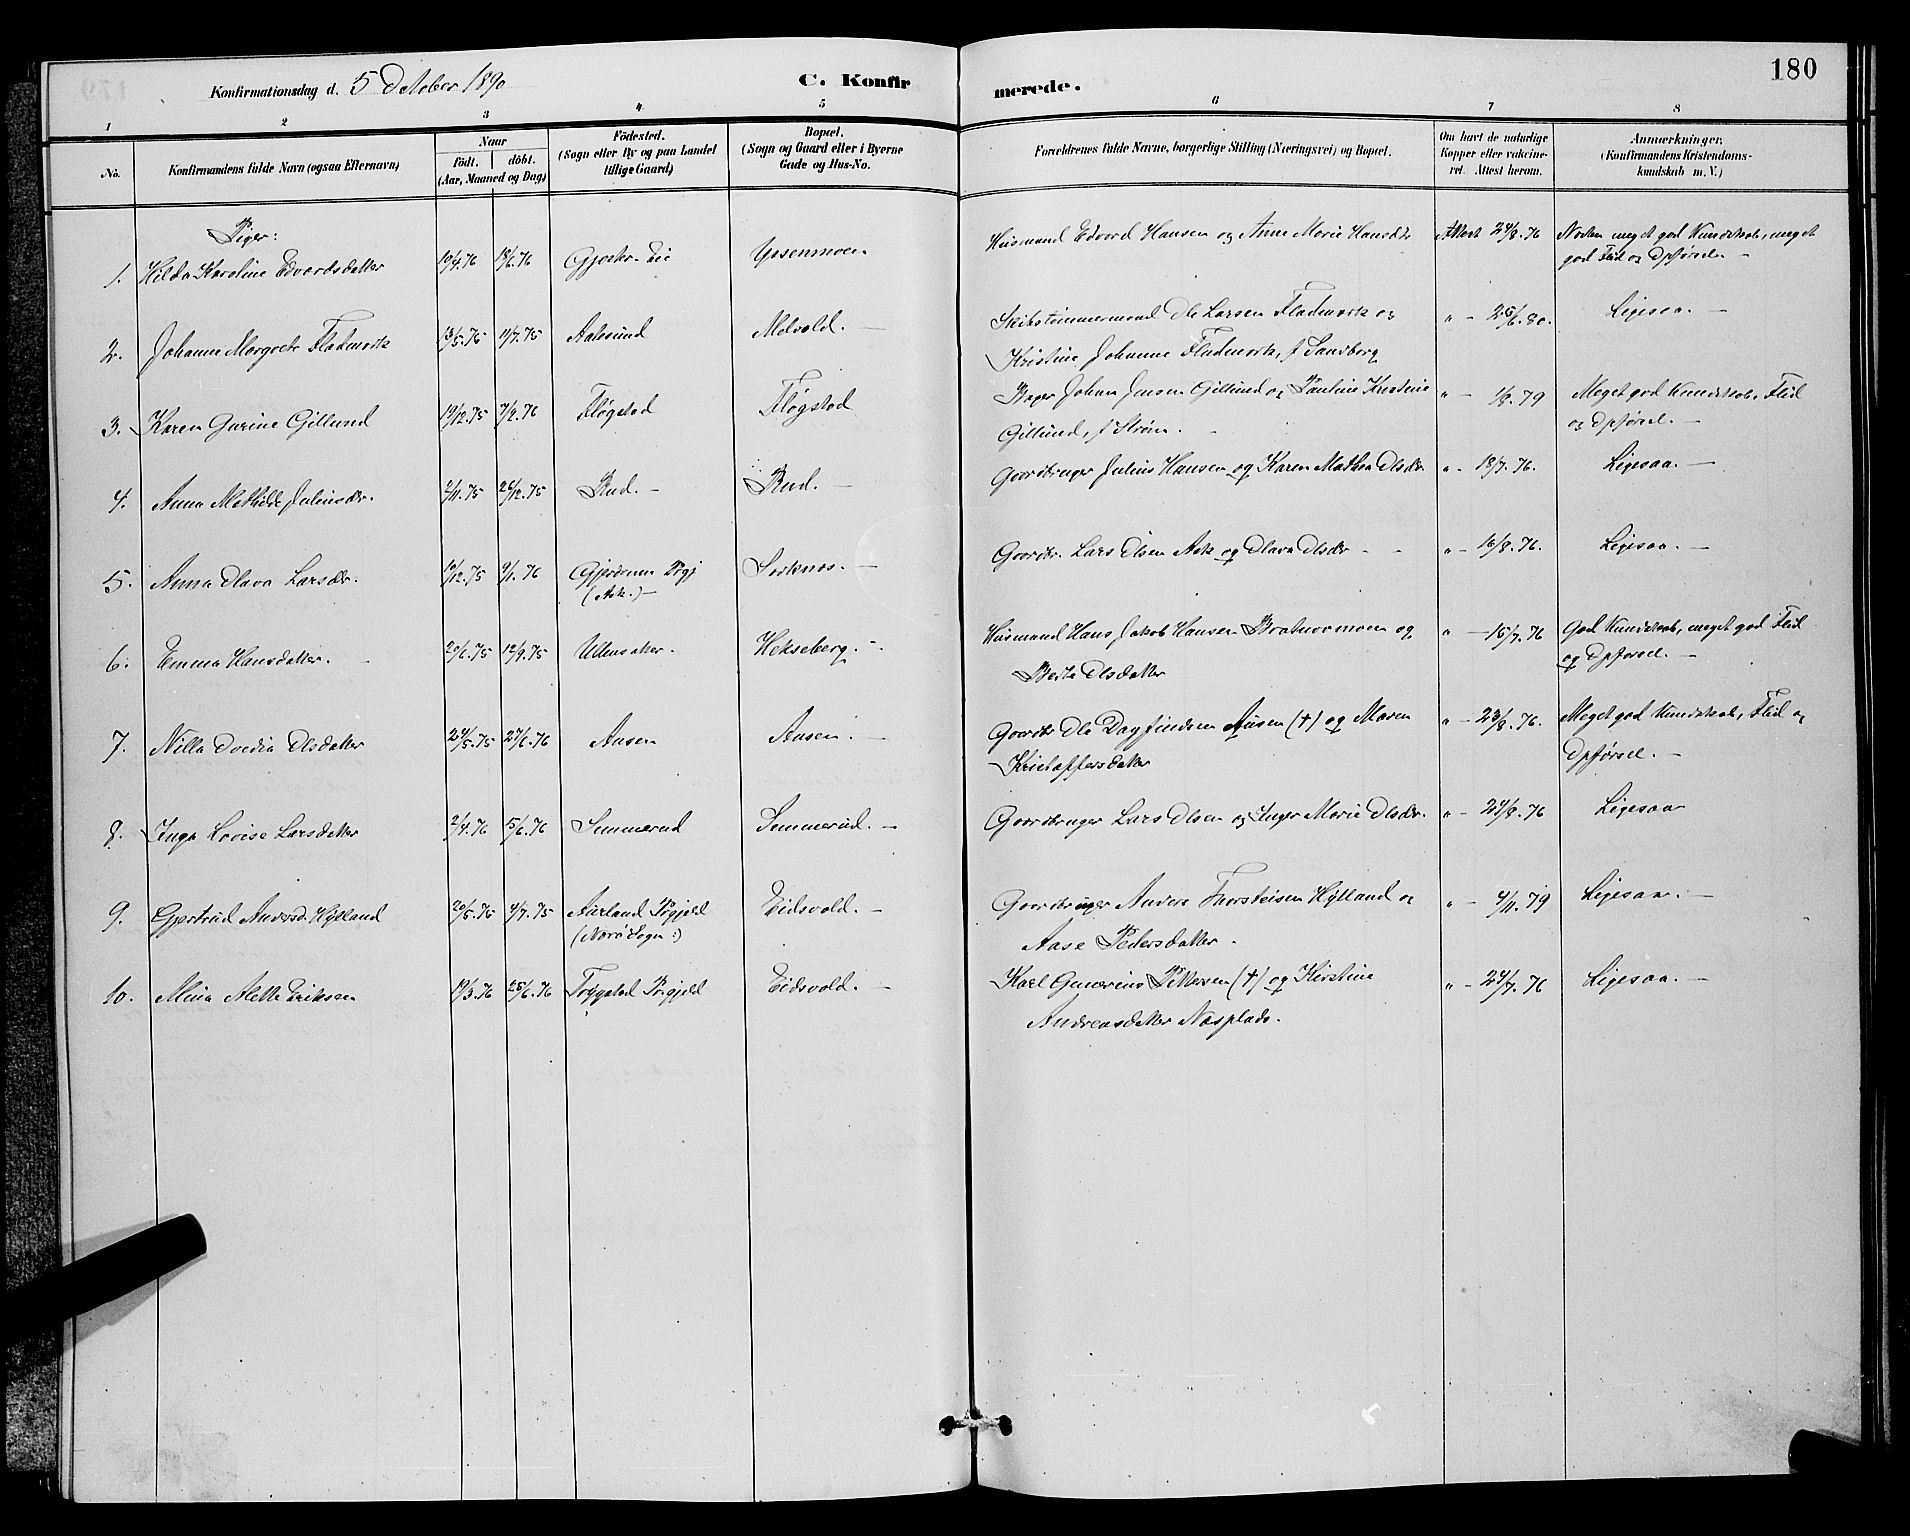 180
Konfirmationsdag d. 5 October 1890
C. Konfirmerede.
1 2 3 4 5 6 7 8
No.
Konfirmandens fulde Navn (ogsaa Efternavn)
Naar
født. døbt.
(Aar, Maaned og Dag)
Födested.
(Sogn eller By og paa Landet
tillige Gaard)
Bopæl.
(Sogn og Gaard eller i Byerne
Gade og Hus-No.
Forældrenes fulde Navne, borgerlige Stilling (Næringsvei) og Bopæl.
Om havt de naturlige
Kopper eller vakcine-
ret. Attest herom.
Anmærkninger.
(Konfirmandens Kristendoms-
kundskab m. V.)
Piger:
1. Hilda Karoline Edvardsdatter 10/4.76 18/6.76 Gjestr. Eie Ossenmoen Husmand Edvard Hansen og Anne Marie Hansdtr Attest 24/8.76 Næsten meget god Kundskab, meget
god Flid og Opførsel. —
2. Johanne Margrete Fladmark 13/5.75 11/7.75 Aalesund Melvold. — Skibstømmermand Ole Larsen Fladmark og
Kristine Johanne Fladmark, f. Sandberg " — 25/6.80. Ligesaa. —
3. Karen Gurine Gillund 19/12.75 7/2.76 Fløgstad Fløgstad Bager Johan Jensen Gillund og Pauline Kristine
Gillund, f. Strøm. " — 1/9.79 Meget god Kundskab, Flid
og Opførsel. —
4. Anna Mathilde Juliusdr. 2/11.75 26/12.75 Rud. — Rud. — Gaardbruger Julius Hansen og Karen Mathea Olsdr. " — 18/7.76. Ligesaa. —
5. Anna Olava Larsdr. 10/12.75 9/1.76 Gjerdrum Prgj
(Ask.) — Sorknes. — Gaardbr. Lars Olsen Ask og Olava Olsdr " — 16/8.76. Ligesaa. —
6. Emma Hansdatter. 20/6.75 12/9.75 Ullensaker. Hekseberg. — Husmand Hans Jakob Hansen og
Berte Olsdatter " — 15/7.76 God Kundskab, meget god Flid
og Opførsel. —
7. Nilla Ovedia Olsdatter 24/5.75 27/6.76 Aasen Aasen. — Gaardbr Ole Dagfindsen Aasen (†) og Maren
Kristoffersdatter " — 23/8.76. Meget god Kundskab, Flid og
Opførsel. —
8. Inga Lovise Larsdatter 2/4.76 5/6.76 Semmerud Semmerud. — Gaardbruger Lars Olsen og Inger Marie Olsdr. " — 24/8.76 Ligesaa
9. Gjertrud Andersd. Hylland 20/5.75 4/7.75 Aurland Prgjeld
(Nordre Sogn:) Eidsvold. — Gaardbruger Anders Thorsteisen Hylland og
Aase Pedersdatter. " — 4/11.79 Ligesaa. —
10. Mina Alette Eriksen 19/3.76 25/6.76 Trygstad Prgjeld Eidsvold. — Karl Gunerius Pettersen (†) og Kirstine
Andreasdatter Næsplads. " — 24/7.76 Ligesaa. —